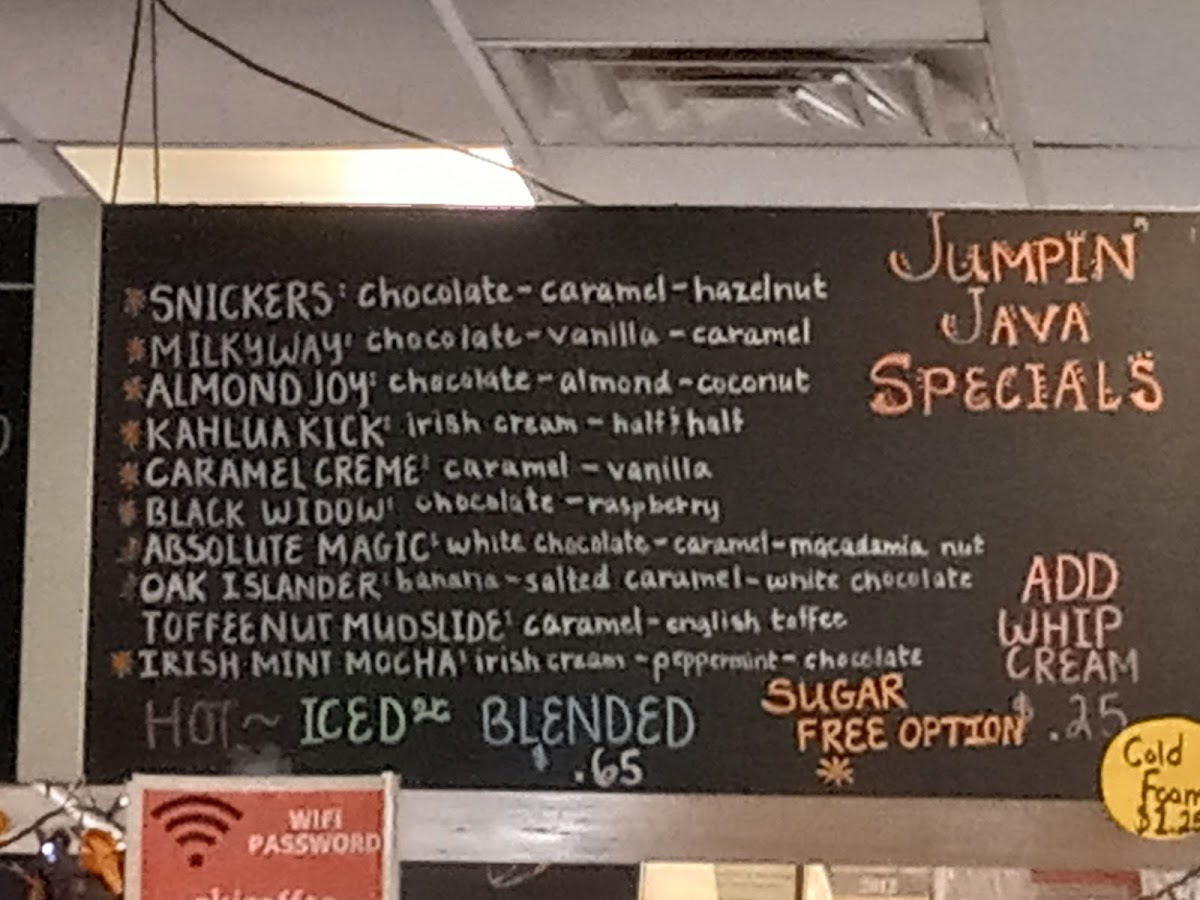 JUMPIN'
JAVA
SPECIALS
*SNICKERS: chocolate-caramel-hazelnut
*MILKYWAY: chocolate-vanilla-caramel
*ALMOND JOY: chocolate-almond-coconut
*KAHLUA KICK: irish cream-half & half
*CARAMEL CREME: caramel-vanilla
*BLACK WIDOW: chocolate-raspberry
ABSOLUTE MAGIC: white chocolate-caramel-macadamia nut
OAK ISLANDER: banana-salted caramel-white chocolate
TOFFEENUT MUDSLIDE: caramel-english toffee
*IRISH MINT MOCHA: irish cream-peppermint-chocolate
HOT~ ICED or BLENDED
$ .65
SUGAR
FREE OPTION
*
ADD
WHIP
CREAM
$ .25
Cold
Foam
WIFI
PASSWORD